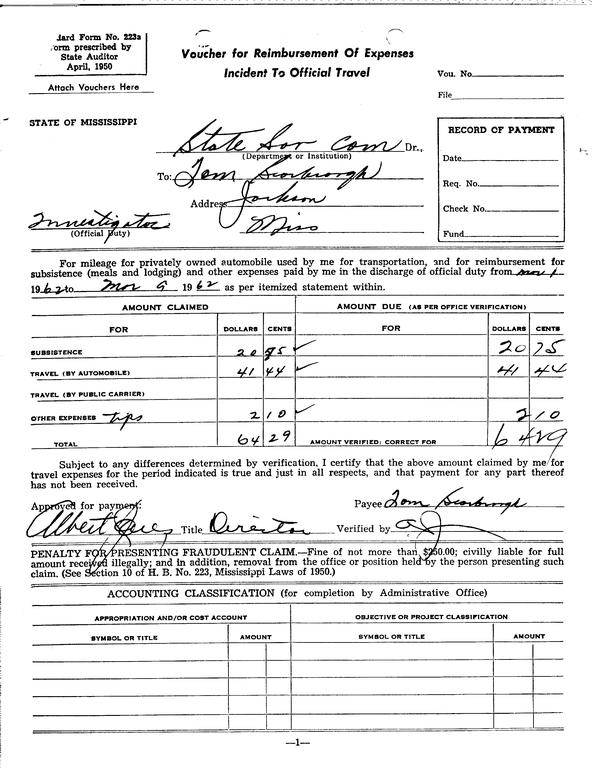 dard Form No. 223a
orm prescribed by
State Auditor
April, 1950
Attach Vouchers Here
Voucher for Reimbursement Of Expenses
Incident To Official Travel
Vou. No.
File
STATE OF MISSISSIPPI
State Sov Com Dr.,
(Department or Institution)
To: Tom Scarbrough
Address Jackson
Miss
Investigator
(Official Duty)
RECORD OF PAYMENT
Date
Req. No.
Check No.
Fund
For mileage for privately owned automobile used by me for transportation, and for reimbursement for
subsistence (meals and lodging) and other expenses paid by me in the discharge of official duty from Mar 1
1962 to Mar 9 1962 as per itemized statement within.
AMOUNT CLAIMED AMOUNT DUE (AS PER OFFICE VERIFICATION)
FOR DOLLARS CENTS FOR DOLLARS CENTS
SUBSISTENCE 20 75 20 75
TRAVEL (BY AUTOMOBILE) 41 44 41 44
TRAVEL (BY PUBLIC CARRIER)
OTHER EXPENSES tips 2 10 2 10
TOTAL 64 29 AMOUNT VERIFIED: CORRECT FOR 64 29
Subject to any differences determined by verification, I certify that the above amount claimed by me for
travel expenses for the period indicated is true and just in all respects, and that payment for any part thereof
has not been received.
Approved for payment: Payee Tom Scarbrough
Albert Title Director Verified by
PENALTY FOR PRESENTING FRAUDULENT CLAIM.—Fine of not more than $250.00; civilly liable for full
amount received illegally; and in addition, removal from the office or position held by the person presenting such
claim. (See Section 10 of H. B. No. 223, Mississippi Laws of 1950.)
ACCOUNTING CLASSIFICATION (for completion by Administrative Office)
APPROPRIATION AND/OR COST ACCOUNT OBJECTIVE OR PROJECT CLASSIFICATION
SYMBOL OR TITLE AMOUNT SYMBOL OR TITLE AMOUNT
—1—